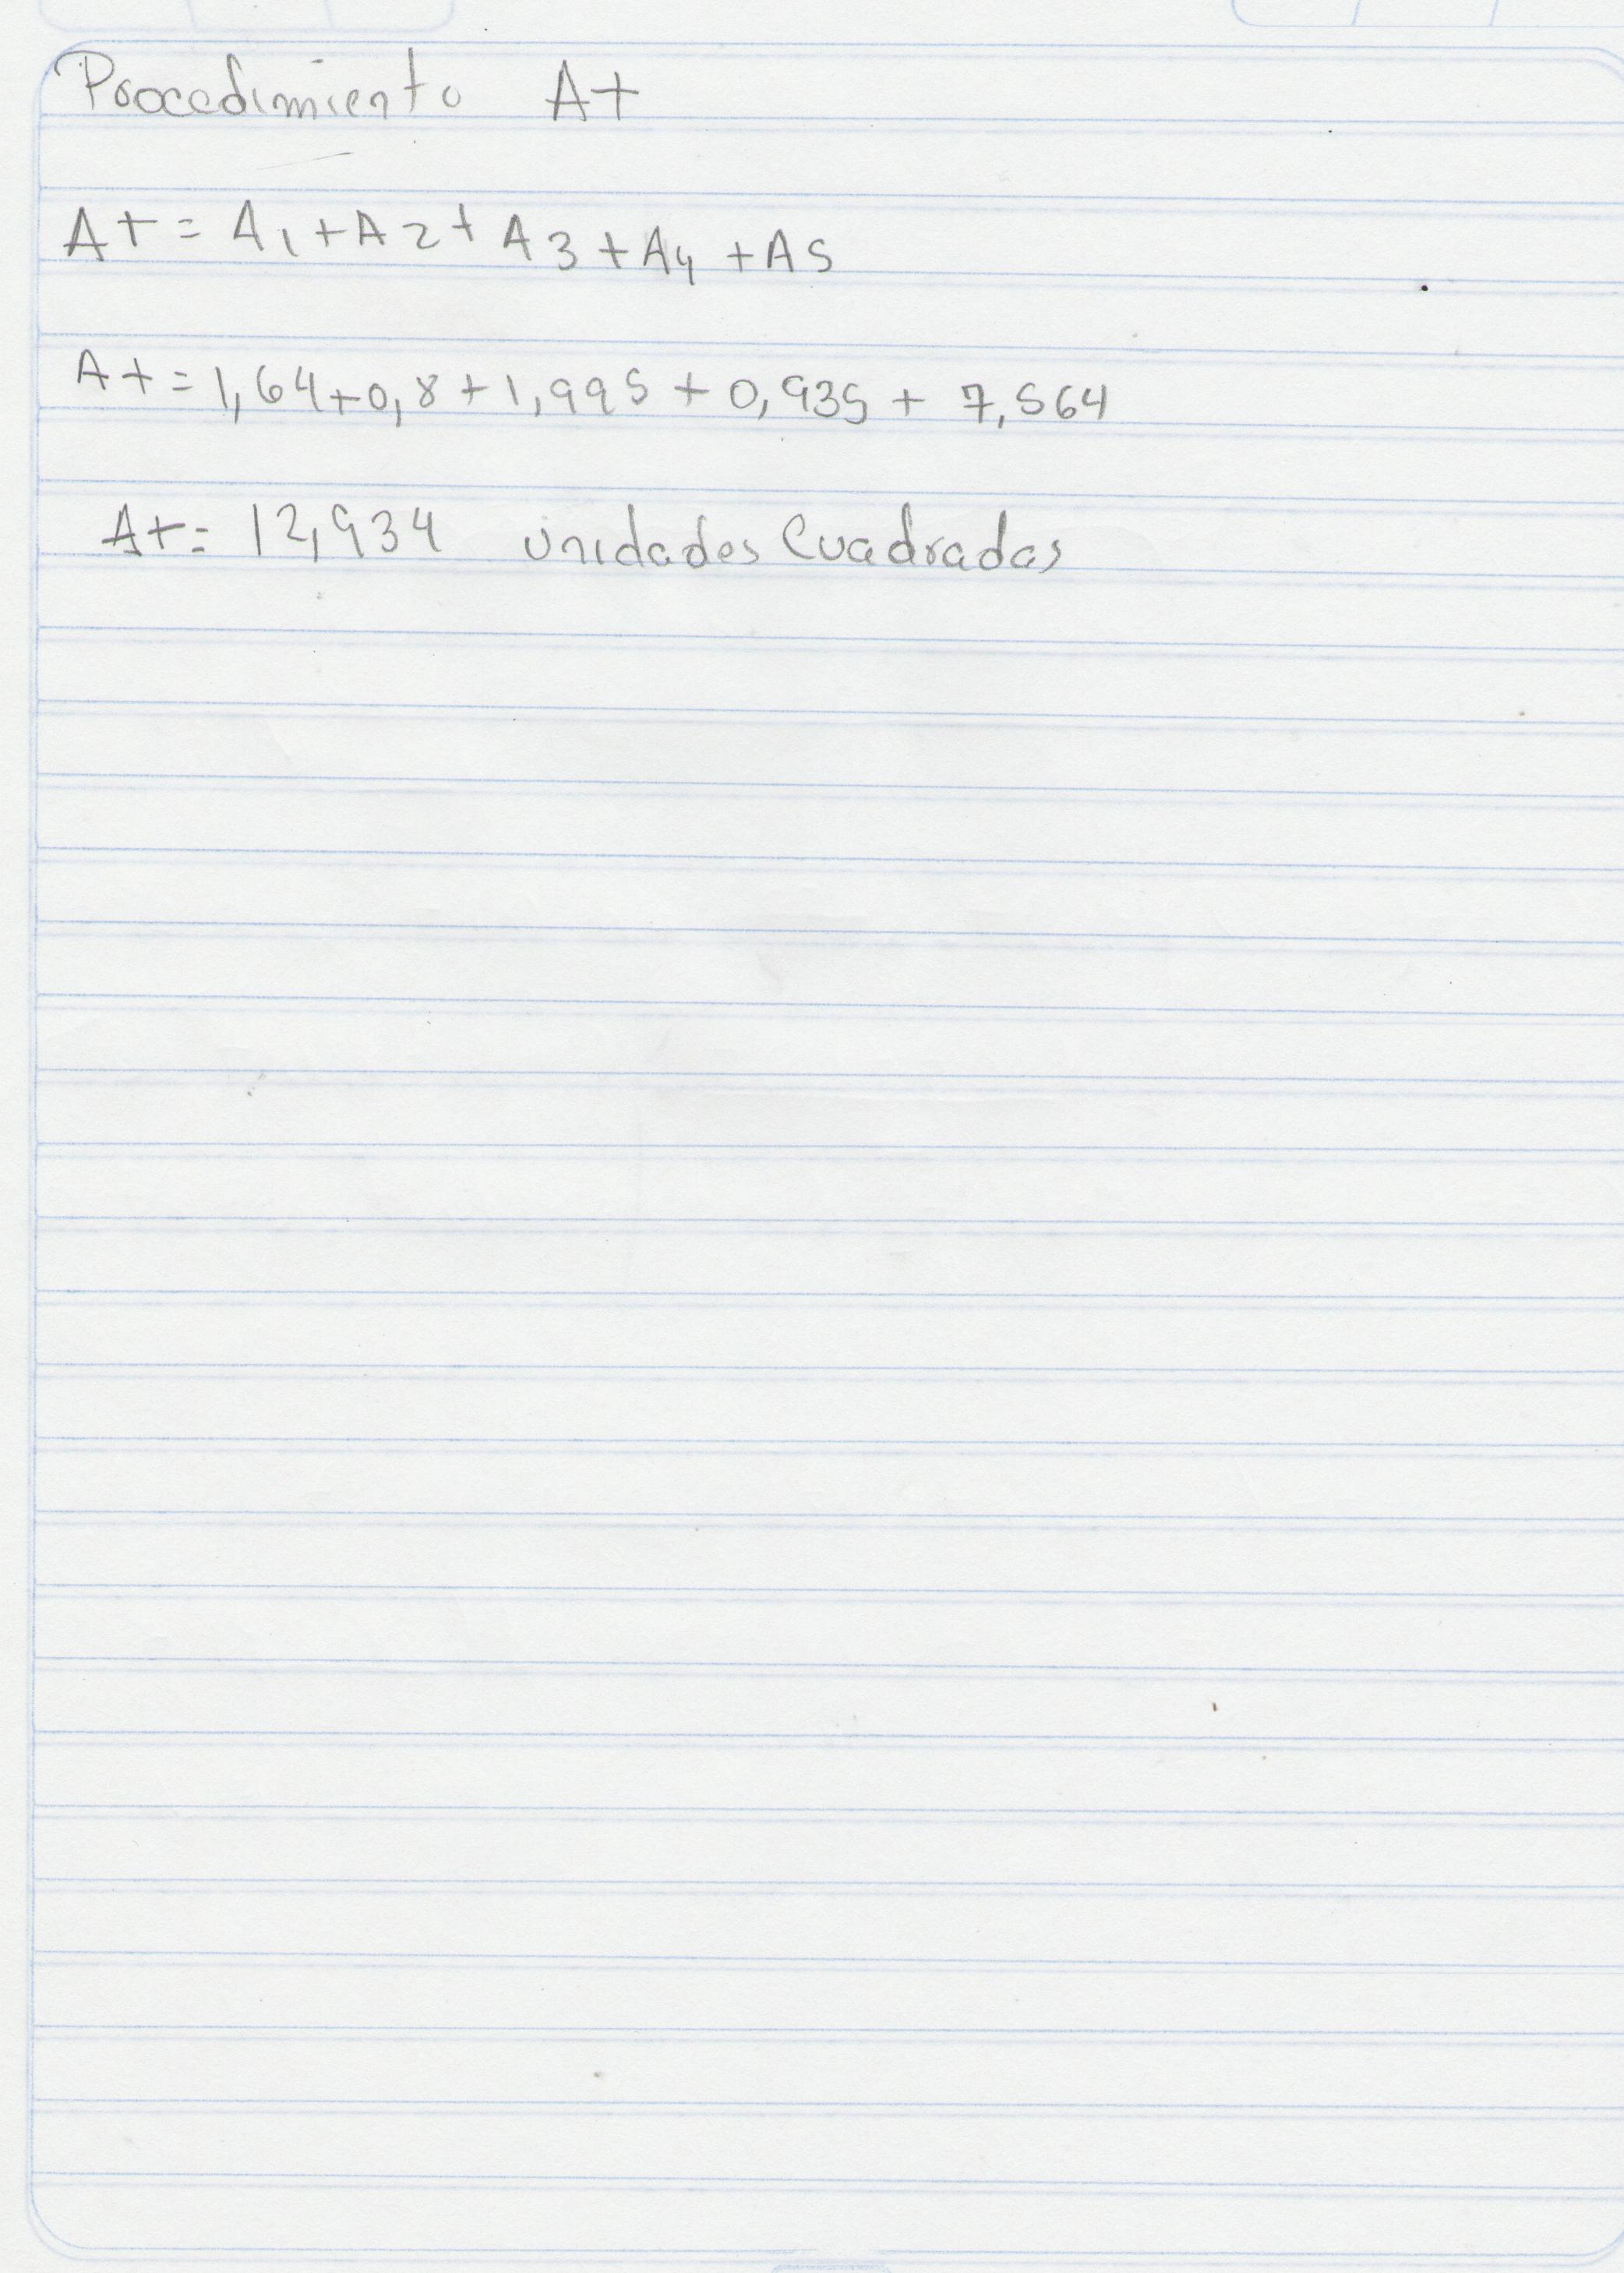 Procedimiento At
At = A1 + A2 + A3 + A4 + A5
At = 1,64 + 0,8 + 1,995 + 0,935 + 7,564
At = 12,934 unidades Cuadradas